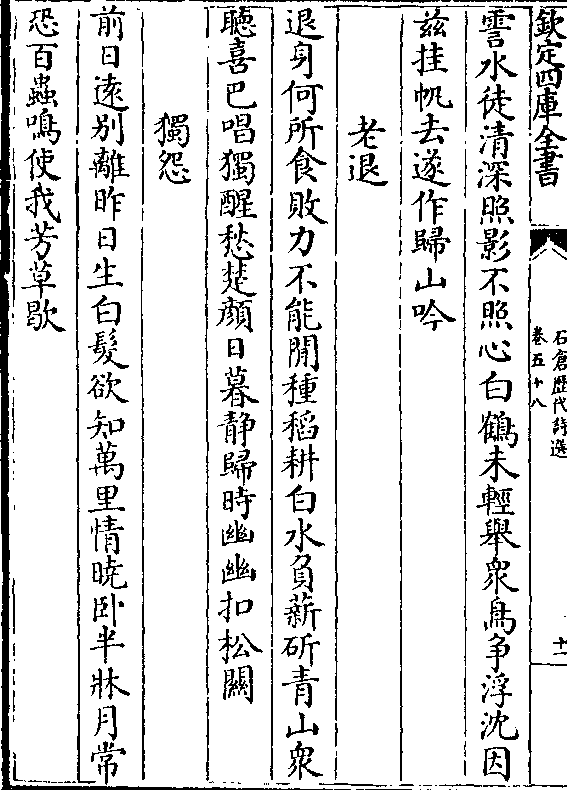 欽定四庫全書
石倉歴代詩選
卷五十八
十一
霅水徒清深照影不照心白鶴未輕舉衆鳥争浮沈因
兹挂帆去遂作歸山吟
老退
退身何所食敗力不能閒種稻耕白水負薪斫青山衆
聽喜巴唱獨醒愁楚顔日暮静歸時幽幽扣松關
獨怨
前日逺别離昨日生白髮欲知萬里情曉卧半牀月常
恐百蟲鳴使我芳草歇